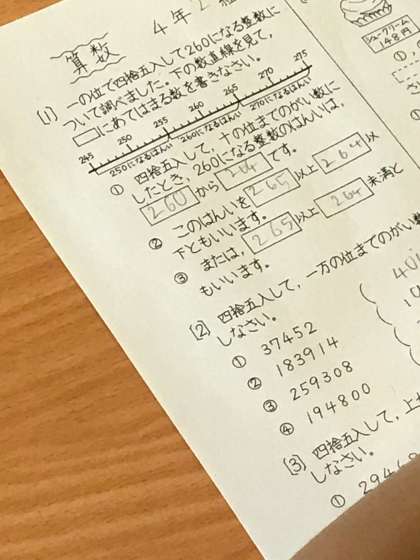 算数
4年2組
[1] 一の位で四捨五入して260になる整数に
ついて調べました。下の数直線を見て、
□にあてはまる数を書きなさい。
245 250 255 260 265 270 275
250になるはんい 260になるはんい 270になるはんい
① 四捨五入して、十の位までのがい数に
したとき、260になる整数のはんいは、
260 から 264 です。
② このはんいを 265 以上 264 以
下ともいいます。
③ または、265 以上 264 未満と
もいいます。
[2] 四捨五入して、一万の位までのがい数
しなさい。
① 37452
② 183914
③ 259308
④ 194800
[3] 四捨五入して、上
しなさい。
① 29468
シュークリーム
148円
①